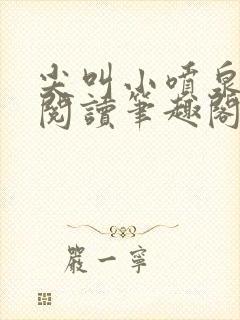 尖叫小噴泉
閱讀筆趣閣
嚴一寧